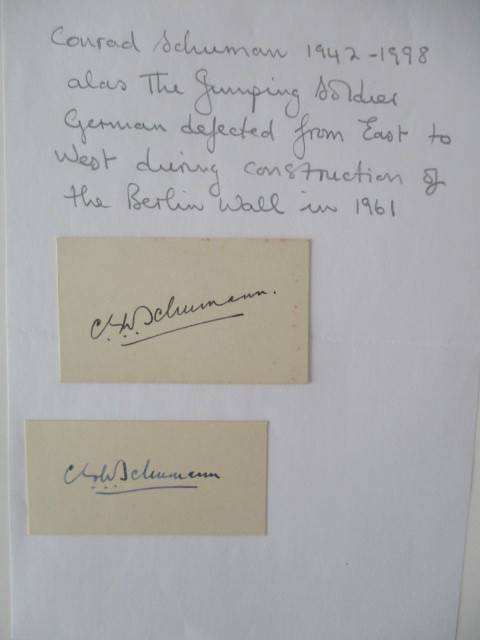 Conrad Schuman 1942-1998
alas The Jumping Soldier
German defected from East to
West during construction of
the Berlin Wall in 1961
C.W. Schumann.
C.W. Schumann